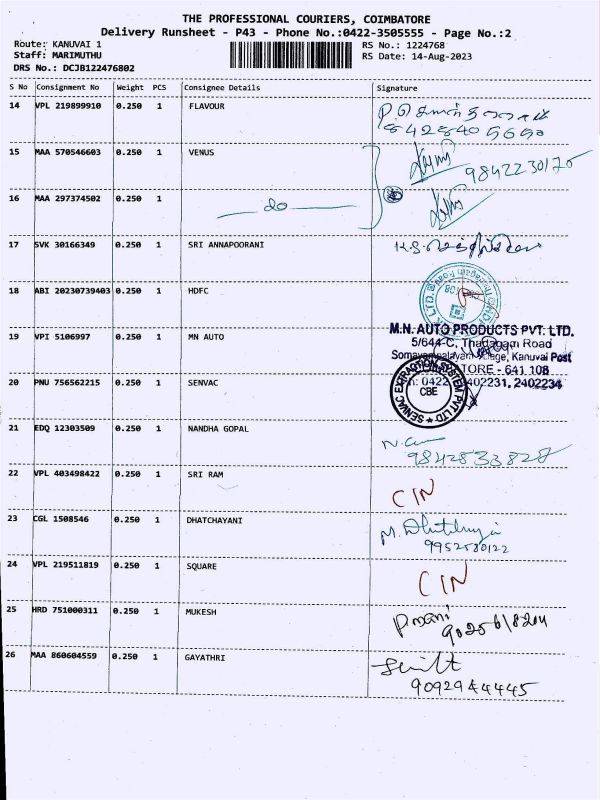 THE PROFESSIONAL COURIERS, COIMBATORE
Delivery Runsheet - P43 - Phone No.:0422-3505555 - Page No.:2
Route: KANUVAI 1
Staff: MARIMUTHU
DRS No.: DCJB122476802
RS No.: 1224768
RS Date: 14-Aug-2023
S No Consignment No Weight PCS Consignee Details Signature
14 VPL 219899910 0.250 1 FLAVOUR
15 MAA 570546603 0.250 1 VENUS 9842230175
16 MAA 297374502 0.250 1 do
17 SVK 30166349 0.250 1 SRI ANNAPOORANI
18 ABI 20230739403 0.250 1 HDFC
19 VPI 5106997 0.250 1 MN AUTO
M.N. AUTO PRODUCTS PVT. LTD.
5/644-C, Thadagam Road
Kanuvai Post
641 108
0422 2402231, 2402234
20 PNU 756562215 0.250 1 SENVAC
SENVAC EXTRACTION SYSTEM PVT LTD
CBE
21 EDQ 12303509 0.250 1 NANDHA GOPAL
9842833828
22 VPL 403498422 0.250 1 SRI RAM CIN
23 CGL 1508546 0.250 1 DHATCHAYANI
24 VPL 219511819 0.250 1 SQUARE CIN
25 HRD 751000311 0.250 1 MUKESH
26 MAA 860604559 0.250 1 GAYATHRI
9092944445